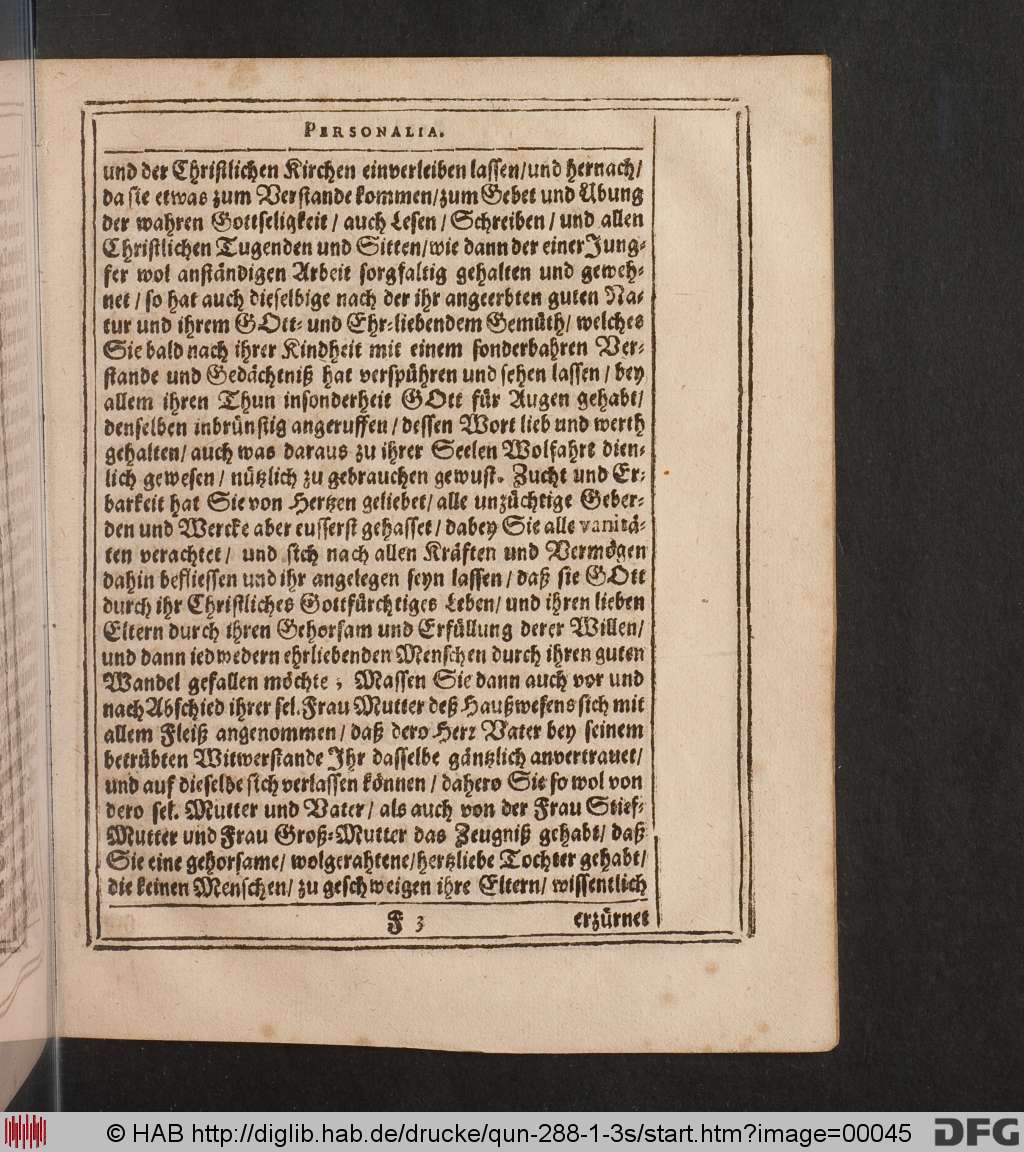 PERSONALIA.
und der Christlichen Kirchen einverleiben lassen/und hernach/
da sie etwas zum Verstande kommen/zum Gebet und Ubung
der wahren Gottseligkeit / auch Lesen / Schreiben / und allen
Christlichen Tugenden und Sitten/wie dann der einer Jung-
fer wol anständigen Arbeit sorgfaltig gehalten und geweh-
net / so hat auch dieselbige nach der ihr angeerbten guten Na-
tur und ihrem GOtt- und Ehr-liebendem Gemüth/ welches
Sie bald nach ihrer Kindheit mit einem sonderbahren Ver-
stande und Gedächtniß hat verspühren und sehen lassen / bey
allem ihren Thun insonderheit GOtt für Augen gehabt/
denselben inbrünstig angeruffen / dessen Wort lieb und werth
gehalten/ auch was daraus zu ihrer Seelen Wolfahrt dien-
lich gewesen / nützlich zu gebrauchen gewust. Zucht und Er-
barkeit hat Sie von Hertzen geliebet/ alle unzüchtige Geber-
den und Wercke aber eusserst gehasset / dabey Sie alle vanitä-
ten verachtet / und sich nach allen Kräften und Vermögen
dahin befliessen und ihr angelegen seyn lassen / daß sie GOtt
durch ihr Christliches Gottfürchtiges Leben/ und ihren lieben
Eltern durch ihren Gehorsam und Erfüllung derer Willen/
und dann iedwedern ehrliebenden Menschen durch ihren guten
Wandel gefallen möchte ; Massen Sie dann auch vor und
nach Abschied ihrer sel. Frau Mutter deß Haußwesens sich mit
allem Fleiß angenommen / daß dero Herr Vater bey seinem
betrübten Witwerstande Ihr dasselbe gäntzlich anvertrauet/
und auf dieselbe sich verlassen können / dahero Sie so wol von
dero sel. Mutter und Vater / als auch von der Frau Stief-
Mutter und Frau Groß-Mutter das Zeugniß gehabt/ daß
Sie eine gehorsame/ wolgerahtene/hertzliebe Tochter gehabt/
die keinen Menschen/ zu geschweigen ihre Eltern/ wissentlich
F 3 erzürnet
© HAB http://diglib.hab.de/drucke/qun-288-1-3s/start.htm?image=00045
DFG